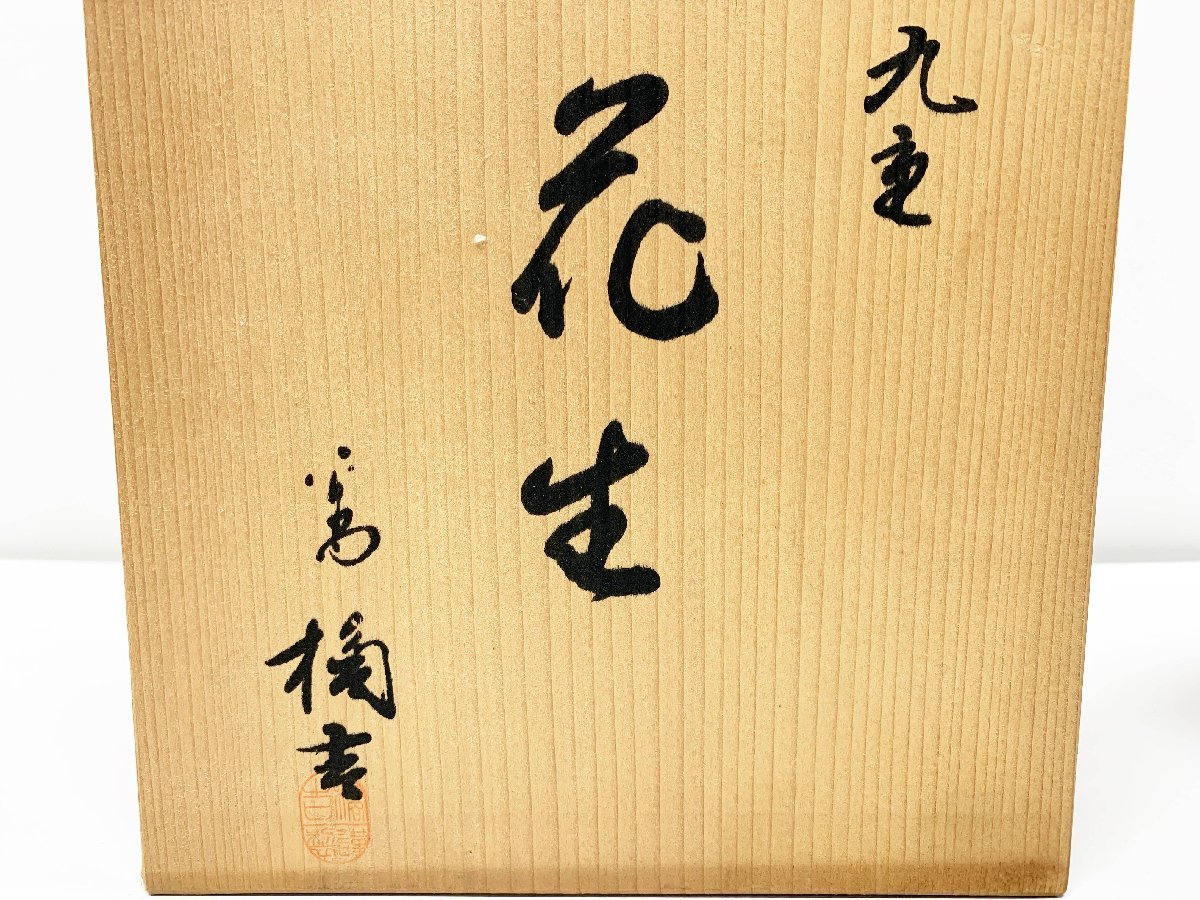 九重
花生
橘吉